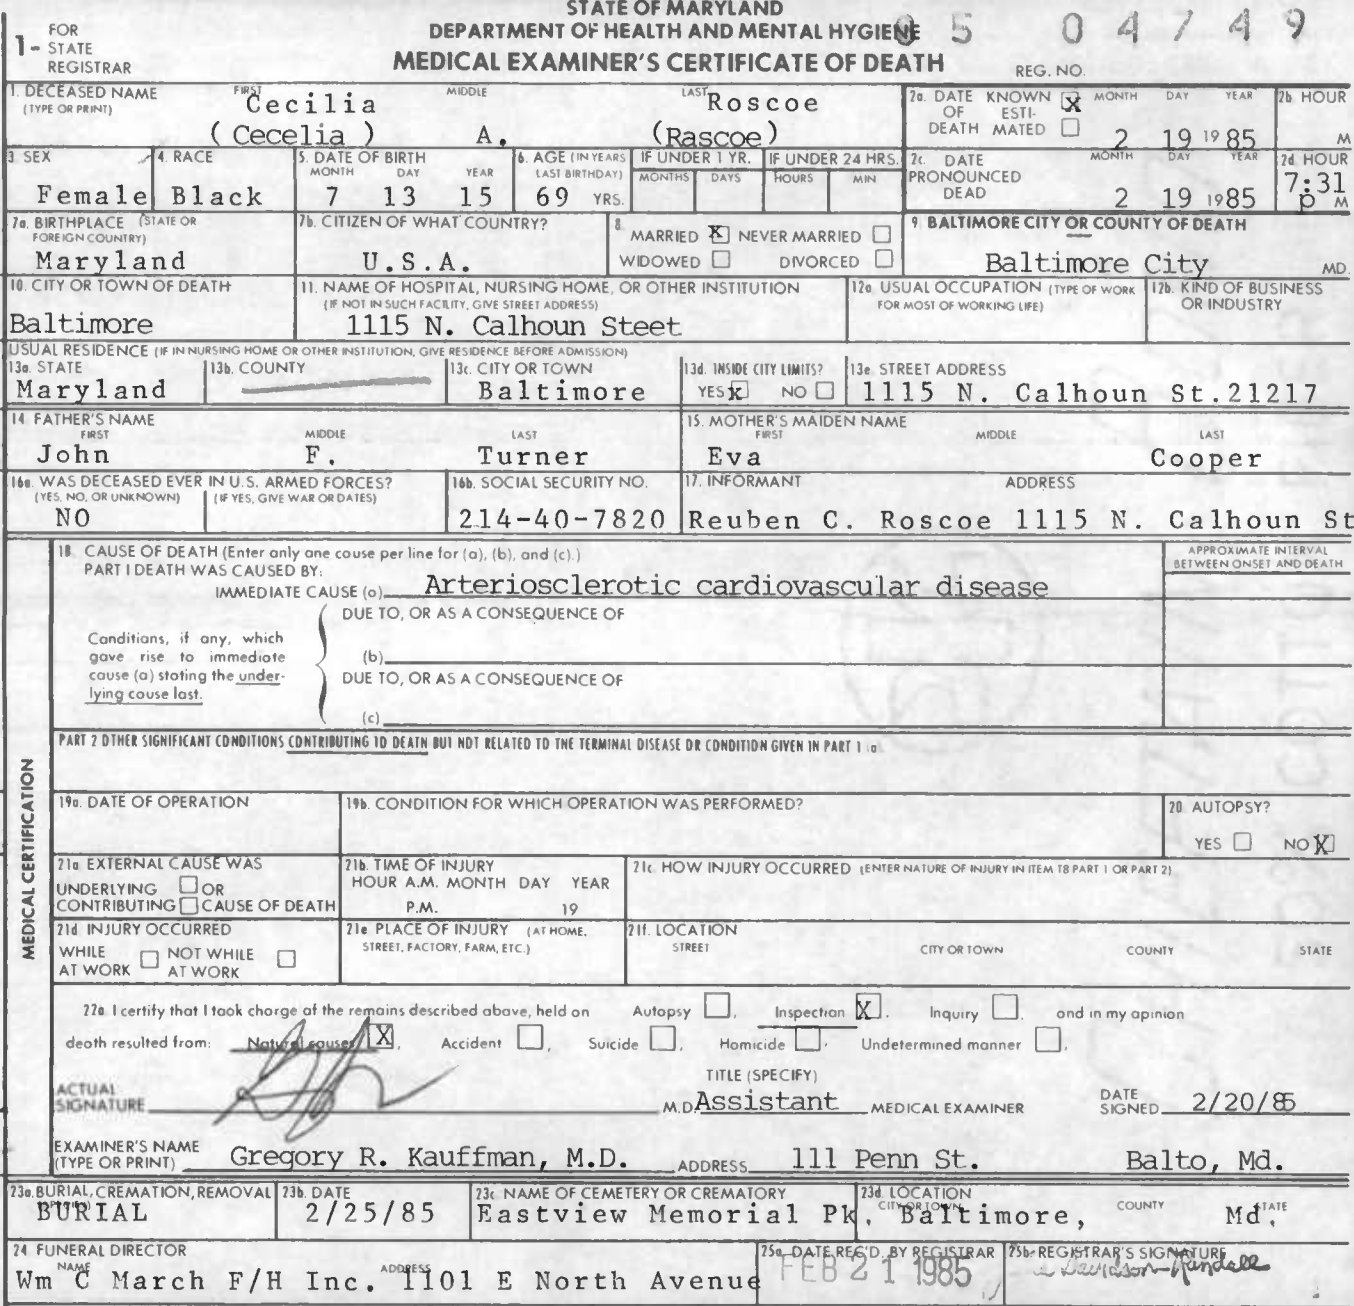 STATE OF MARYLAND
DEPARTMENT OF HEALTH AND MENTAL HYGIENE
MEDICAL EXAMINER'S CERTIFICATE OF DEATH
1- FOR STATE REGISTRAR
85 04749
REG. NO.
1. DECEASED NAME (TYPE OR PRINT) FIRST MIDDLE LAST
Cecilia Roscoe
(Cecelia) A. (Rascoe)
2a. DATE OF DEATH KNOWN X ESTIMATED MONTH DAY YEAR
2 19 1985
2b. HOUR M
3. SEX Female
4. RACE Black
5. DATE OF BIRTH MONTH DAY YEAR
7 13 15
6. AGE (IN YEARS LAST BIRTHDAY)
69 YRS.
IF UNDER 1 YR. MONTHS DAYS
IF UNDER 24 HRS. HOURS MIN
2c. DATE PRONOUNCED DEAD MONTH DAY YEAR
2 19 1985
2d. HOUR
7:31 p M
7a. BIRTHPLACE (STATE OR FOREIGN COUNTRY)
Maryland
7b. CITIZEN OF WHAT COUNTRY?
U.S.A.
8. MARRIED X NEVER MARRIED
WIDOWED DIVORCED
9. BALTIMORE CITY OR COUNTY OF DEATH
Baltimore City MD.
10. CITY OR TOWN OF DEATH
Baltimore
11. NAME OF HOSPITAL, NURSING HOME, OR OTHER INSTITUTION
(IF NOT IN SUCH FACILITY, GIVE STREET ADDRESS)
1115 N. Calhoun Steet
12a. USUAL OCCUPATION (TYPE OF WORK FOR MOST OF WORKING LIFE)
12b. KIND OF BUSINESS OR INDUSTRY
USUAL RESIDENCE (IF IN NURSING HOME OR OTHER INSTITUTION, GIVE RESIDENCE BEFORE ADMISSION)
13a. STATE
Maryland
13b. COUNTY
13c. CITY OR TOWN
Baltimore
13d. INSIDE CITY LIMITS?
YES X NO
13e. STREET ADDRESS
1115 N. Calhoun St.21217
14. FATHER'S NAME FIRST MIDDLE LAST
John F. Turner
15. MOTHER'S MAIDEN NAME FIRST MIDDLE LAST
Eva Cooper
16a. WAS DECEASED EVER IN U.S. ARMED FORCES?
(YES, NO, OR UNKNOWN) (IF YES, GIVE WAR OR DATES)
NO
16b. SOCIAL SECURITY NO.
214-40-7820
17. INFORMANT ADDRESS
Reuben C. Roscoe 1115 N. Calhoun St
MEDICAL CERTIFICATION
18. CAUSE OF DEATH (Enter only one cause per line for (a), (b), and (c).)
PART I DEATH WAS CAUSED BY:
IMMEDIATE CAUSE (a) Arteriosclerotic cardiovascular disease
APPROXIMATE INTERVAL BETWEEN ONSET AND DEATH
DUE TO, OR AS A CONSEQUENCE OF
Conditions, if any, which gave rise to immediate cause (a) stating the underlying cause last.
(b)
DUE TO, OR AS A CONSEQUENCE OF
(c)
PART 2 OTHER SIGNIFICANT CONDITIONS CONTRIBUTING TO DEATH BUT NOT RELATED TO THE TERMINAL DISEASE OR CONDITION GIVEN IN PART 1 a
19a. DATE OF OPERATION
19b. CONDITION FOR WHICH OPERATION WAS PERFORMED?
20. AUTOPSY?
YES NO X
21a. EXTERNAL CAUSE WAS
UNDERLYING OR
CONTRIBUTING CAUSE OF DEATH
21b. TIME OF INJURY
HOUR A.M. MONTH DAY YEAR
P.M. 19
21c. HOW INJURY OCCURRED (ENTER NATURE OF INJURY IN ITEM 18 PART 1 OR PART 2)
21d. INJURY OCCURRED
WHILE AT WORK NOT WHILE AT WORK
21e. PLACE OF INJURY (AT HOME, STREET, FACTORY, FARM, ETC.)
21f. LOCATION
STREET CITY OR TOWN COUNTY STATE
22a. I certify that I took charge of the remains described above, held an Autopsy , Inspection X , Inquiry , and in my opinion
death resulted from: Natural causes X , Accident , Suicide , Homicide , Undetermined manner .
ACTUAL SIGNATURE
M.D.
TITLE (SPECIFY)
Assistant MEDICAL EXAMINER
DATE SIGNED 2/20/85
EXAMINER'S NAME (TYPE OR PRINT) Gregory R. Kauffman, M.D. ADDRESS 111 Penn St. Balto, Md.
23a. BURIAL, CREMATION, REMOVAL
BURIAL
23b. DATE
2/25/85
23c. NAME OF CEMETERY OR CREMATORY
Eastview Memorial Pk.
23d. LOCATION CITY OR TOWN COUNTY STATE
Baltimore, Md.
24. FUNERAL DIRECTOR
NAME ADDRESS
Wm C March F/H Inc. 1101 E North Avenue
25a. DATE REC'D. BY REGISTRAR
FEB 21 1985
25b. REGISTRAR'S SIGNATURE
Davidson-Randall